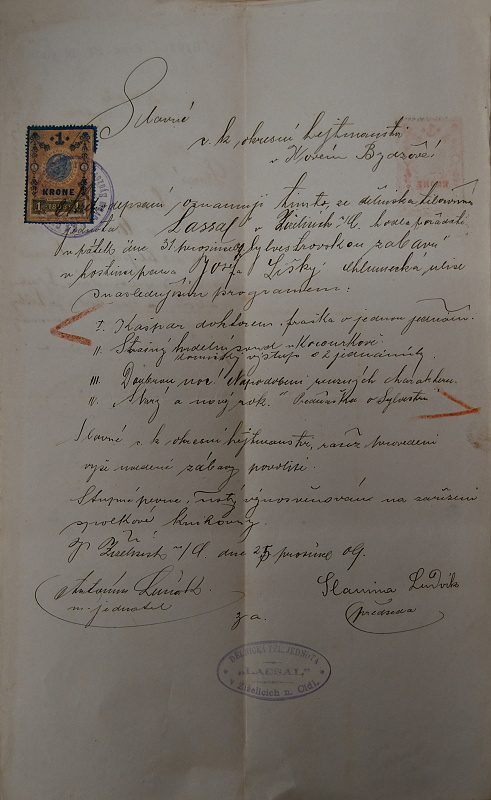 Slavné
c. k. okresní hejtmanství
v Novém Bydžově
1
KRONE
1898
podepsaní oznamují tímto, že dělnická tělocvičná
jednota „Lassal“ v Žiželicích n/C. hodlá pořádati
v pátek dne 31. prosince Sylvestrovskou zábavu
v hostinci pana Josefa Lišky Chlumecká ulice
s následujícím programem:
I. Kašpar doktorem, fraška v jednom jednání.
II. Strašný hudební soud v Kocourkově
výstup o 2 jednáních.
III. Dobrou noc! Napodobení různých charakterů.
IV. „Starý a nový rok.“ Přednáška o Sylvestru
Slavné c. k. okresní hejtmanství, račiž provedení
výše uvedené zábavy povoliti.
Vstupné pevné, čistý výnos věnován na zařízení
spolkové knihovny.
V Žiželicích n/C. dne 25 prosince 09.
Antonín
jednatel
za.
Slanina Ludvík
předseda
DĚLNICKÁ TĚL. JEDNOTA
„LASSAL“
v Žiželicích n. Cidl.